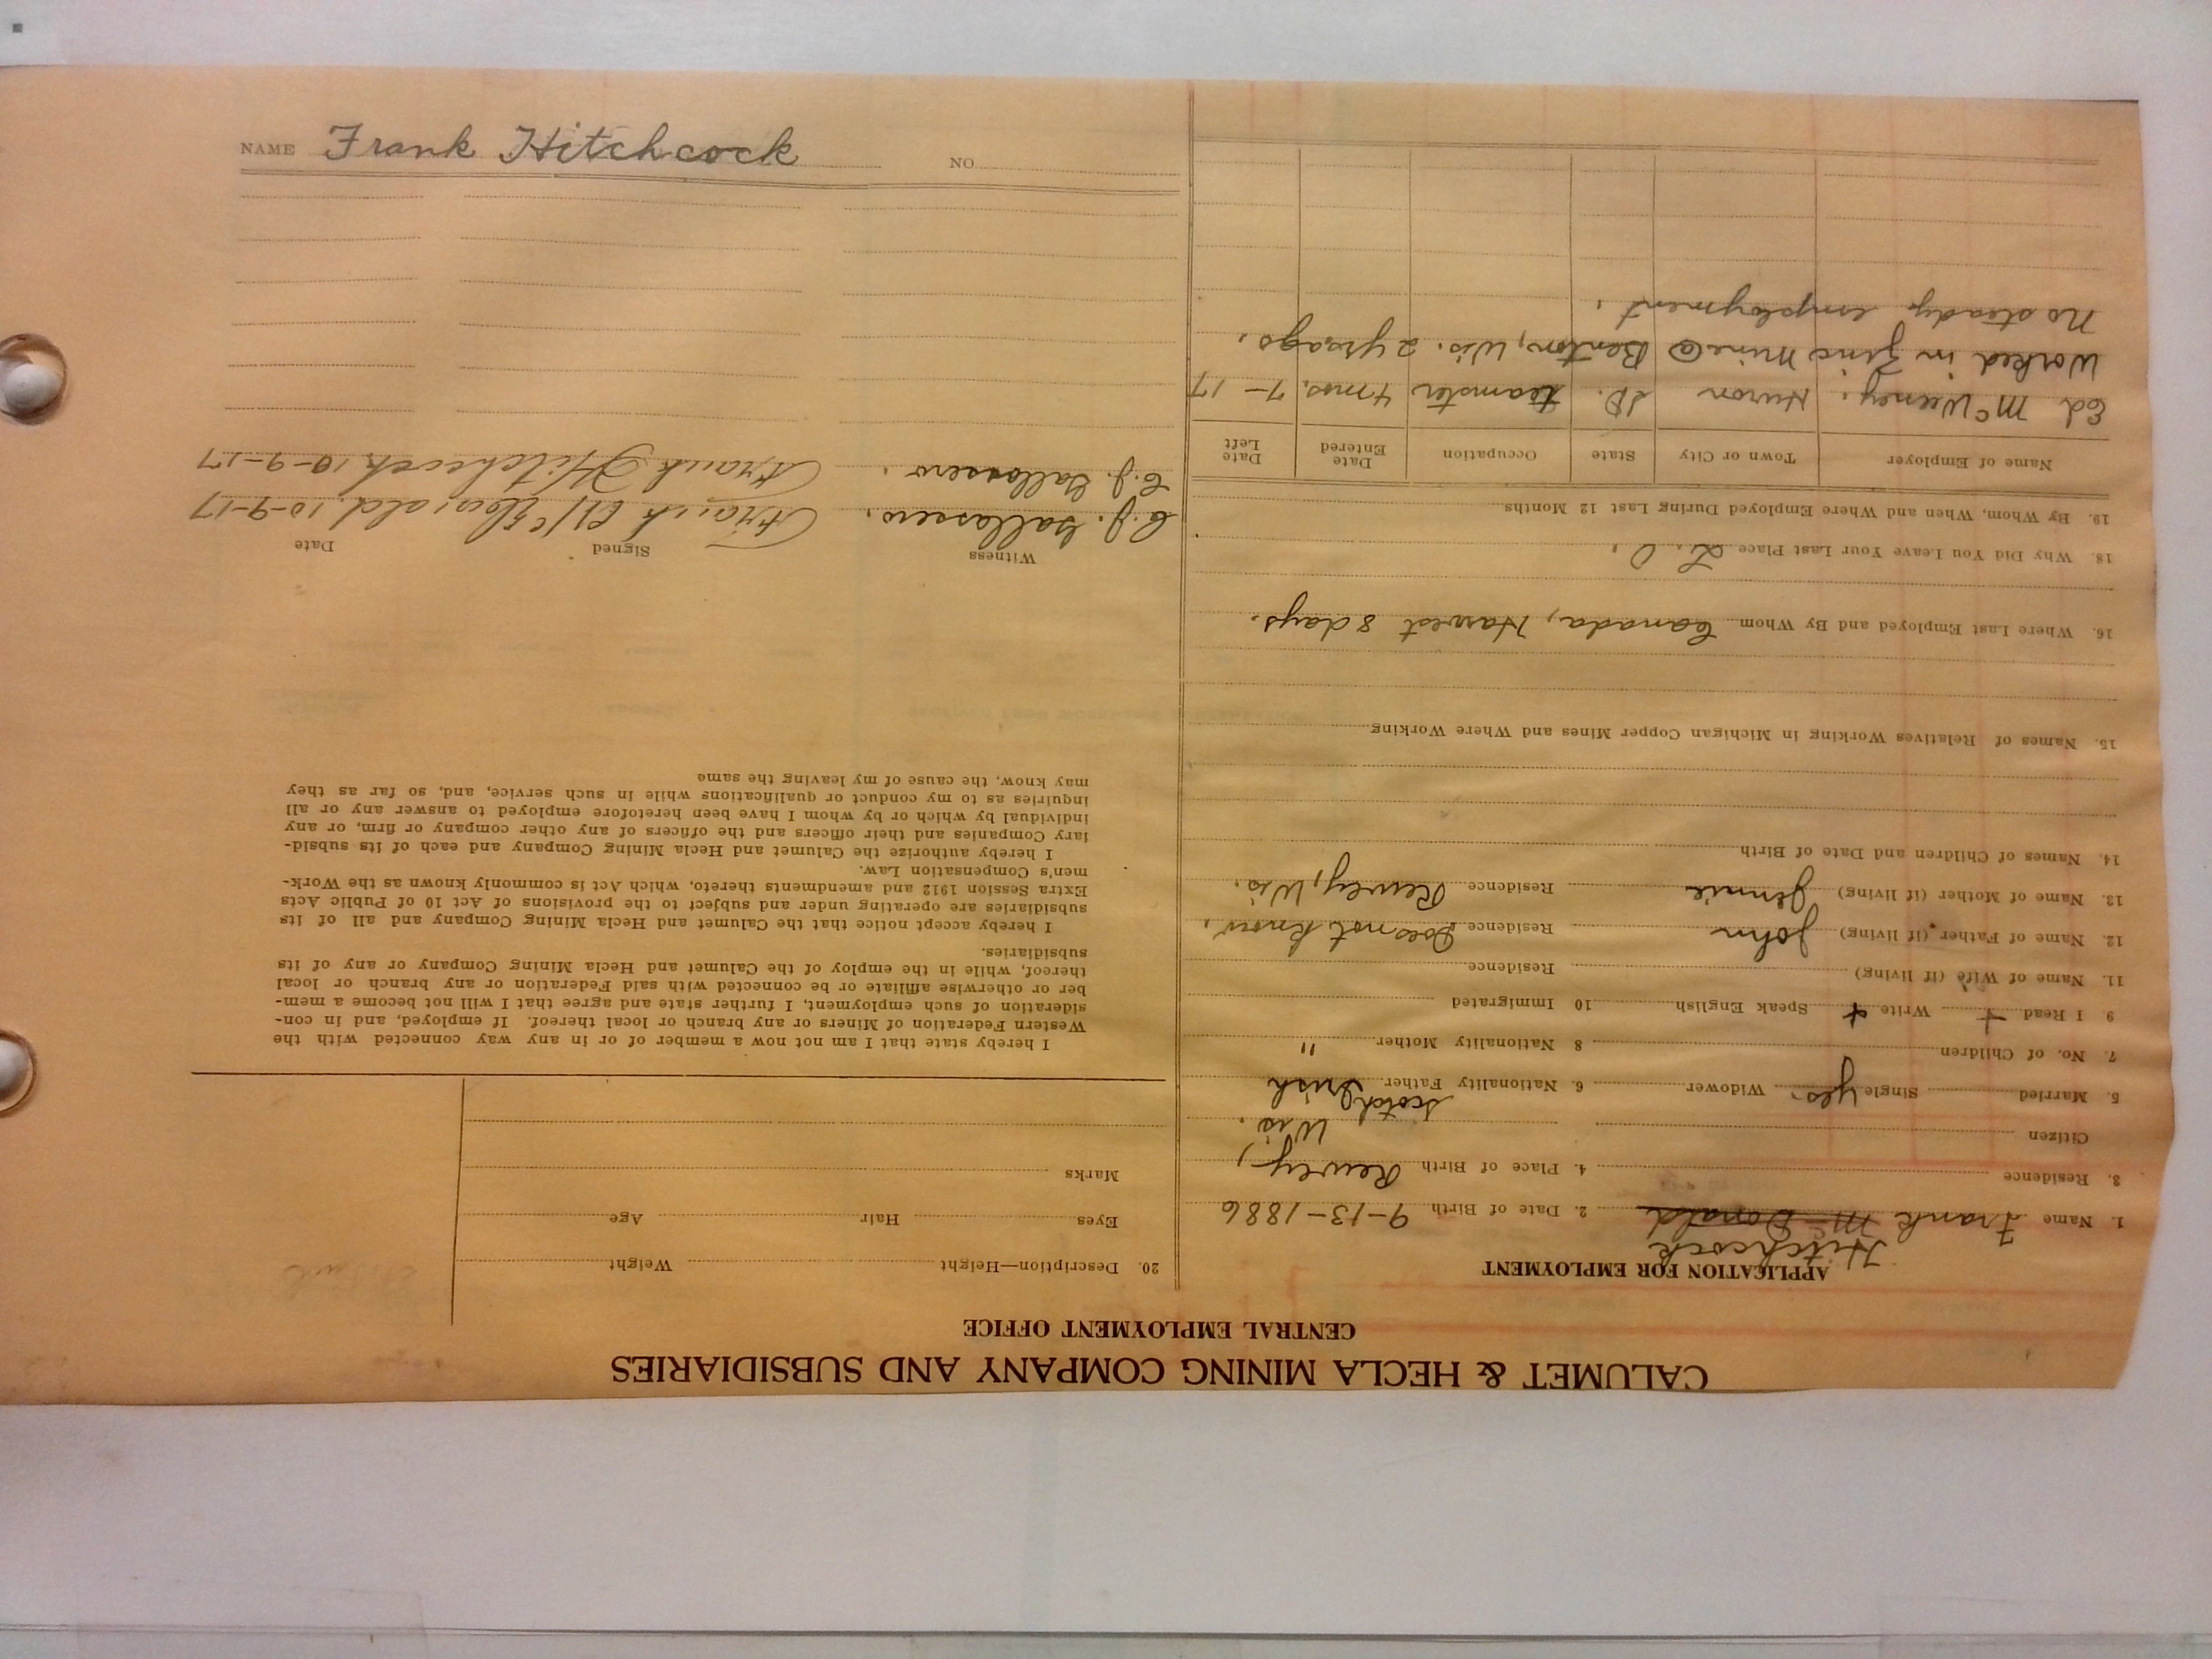 CALUMET & HECLA MINING COMPANY AND SUBSIDIARIES
CENTRAL EMPLOYMENT OFFICE
APPLICATION FOR EMPLOYMENT
Hitchcock
1. Name Frank McDonald 2. Date of Birth 9-13-1886
3. Residence 4. Place of Birth Rewey,
Citizen Wis.
5. Married Single Yes. Widower 6. Nationality Father Scotch Irish
7. No. of Children 8 Nationality Mother "
9 I Read + Write + Speak English 10 Immigrated
11. Name of Wife (if living) Residence
12. Name of Father (if living) John Residence Does not know.
13. Name of Mother (if living) Jennie Residence Rewey, Wis.
14. Names of Children and Date of Birth
15. Names of Relatives Working in Michigan Copper Mines and Where Working
16. Where Last Employed and By Whom Canada, Harvest 8 days.
18. Why Did You Leave Your Last Place
19. By Whom, When and Where Employed During Last 12 Months
Name of Employer Town or City State Occupation Date Entered Date Left
Ed. McWeeney. Huron SD. teamster 4 mos. 7-17
Worked in Zinc Mine @ Benton, Wis. 2 yrs ago.
No steady employment.
20. Description—Height Weight
Eyes Hair Age
Marks
I hereby state that I am not now a member of or in any way connected with the
Western Federation of Miners or any branch or local thereof. If employed, and in con-
sideration of such employment, I further state and agree that I will not become a mem-
ber or otherwise affiliate or be connected with said Federation or any branch or local
thereof, while in the employ of the Calumet and Hecla Mining Company or any of its
subsidiaries.
I hereby accept notice that the Calumet and Hecla Mining Company and all of its
subsidiaries are operating under and subject to the provisions of Act 10 of Public Acts
Extra Session 1912 and amendments thereto, which Act is commonly known as the Work-
men's Compensation Law.
I hereby authorize the Calumet and Hecla Mining Company and each of its subsid-
iary Companies and their officers and the officers of any other company or firm, or any
individual by which or by whom I have been heretofore employed to answer any or all
inquiries as to my conduct or qualifications while in such service, and, so far as they
may know, the cause of my leaving the same
Witness Signed Date
C.J. Gallassero. Frank McDonald 10-9-17
C.J. Gallassero. Frank Hitchcock 10-9-17
NAME Frank Hitchcock NO.